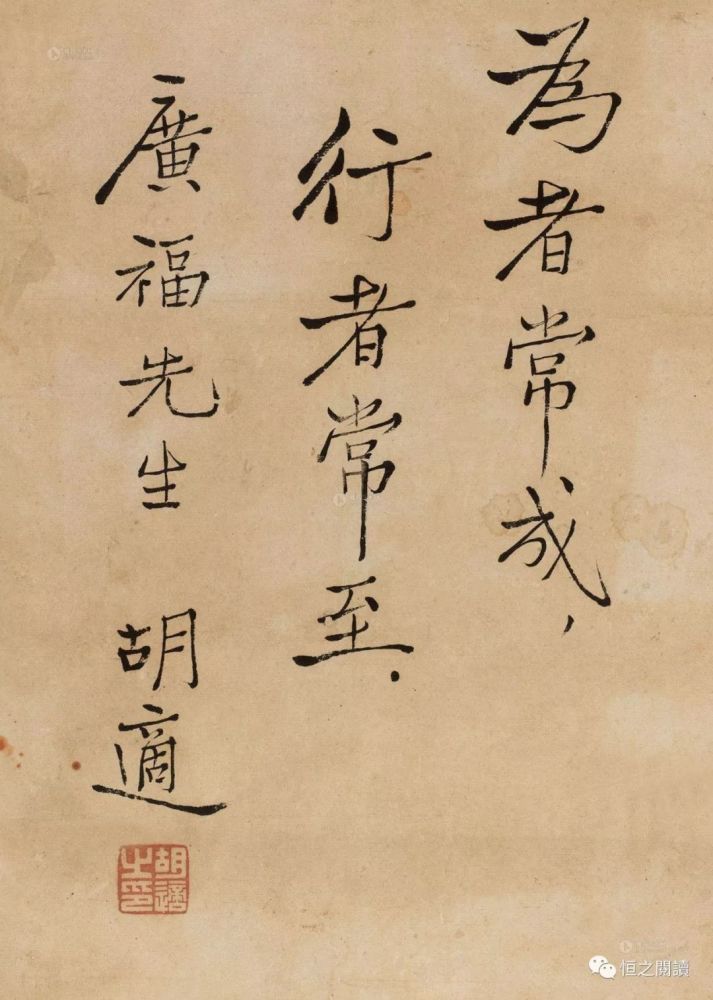 為者常成，
行者常至．
廣福先生 胡適
胡適之印
恒之閱讀